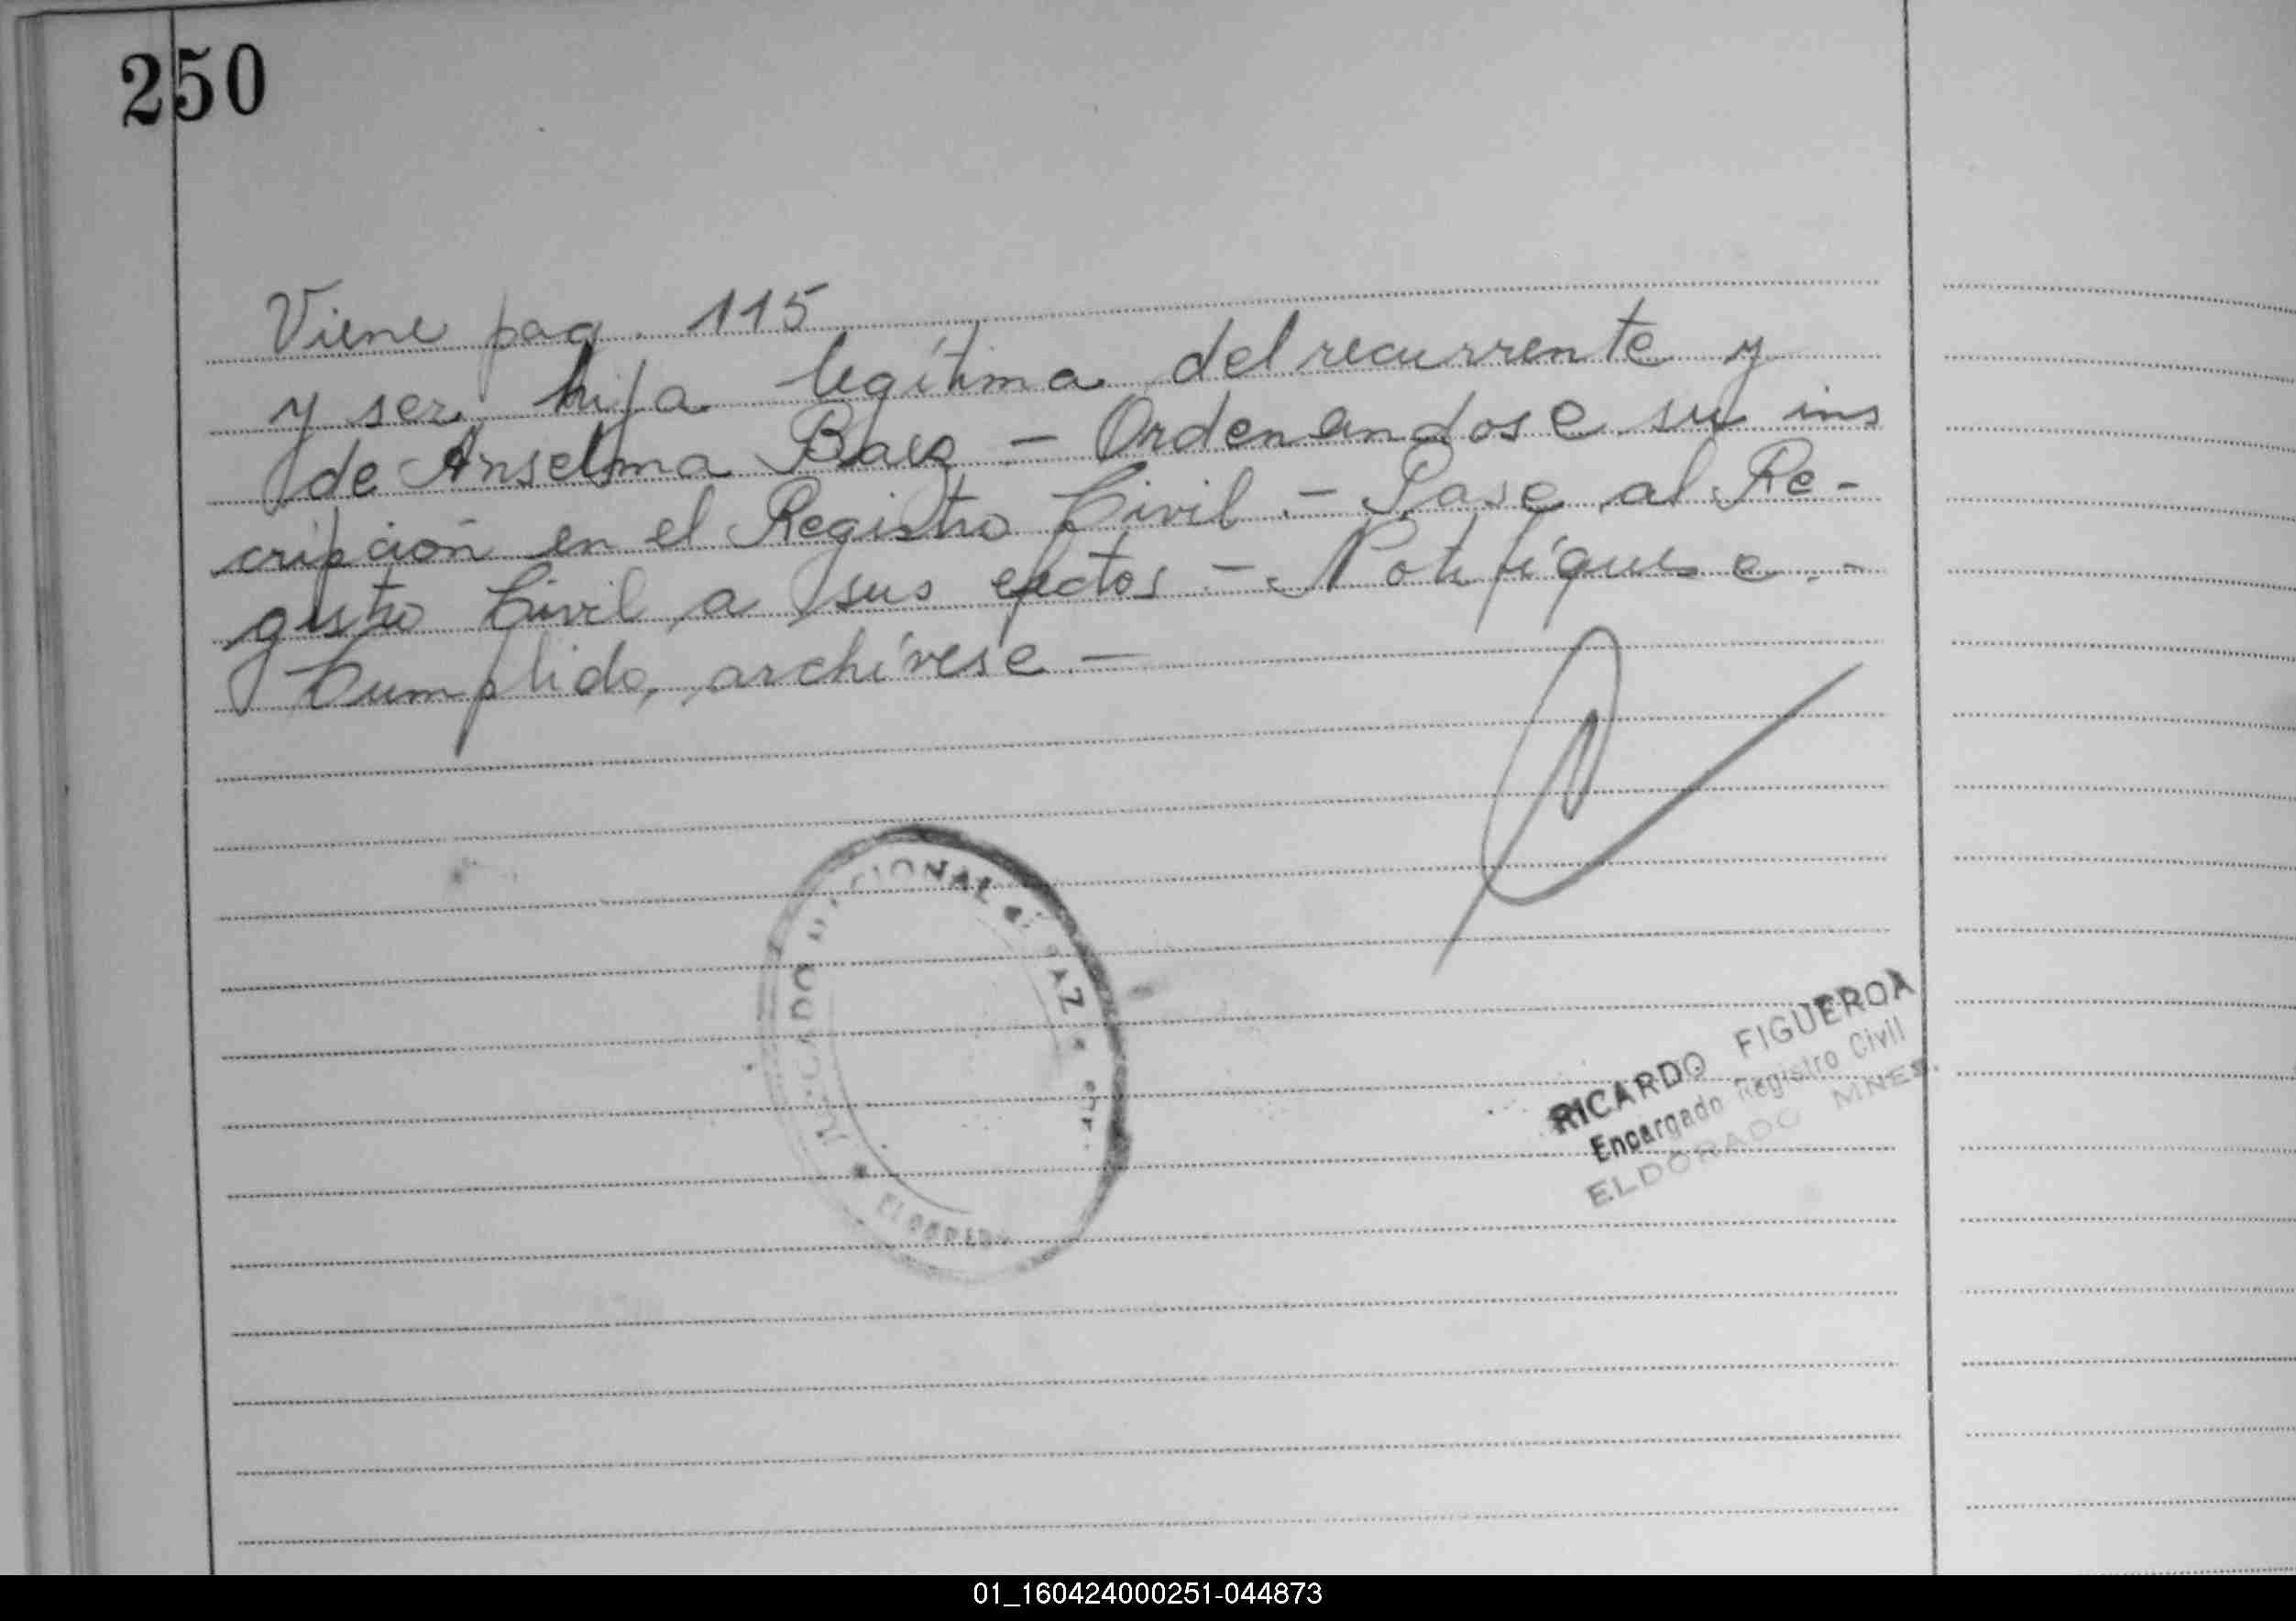 250
Viene pag. 115
y ser hija legítima del recurrente y
de Anselma Baez - Ordenandose su ins
cripción en el Registro Civil. - Pase al Re-
gistro Civil a sus efectos - Notifíquese. -
Cumplido, archívese -
RICARDO FIGUEROA
Encargado Registro Civil
ELDORADO MNES.
01_160424000251-044873